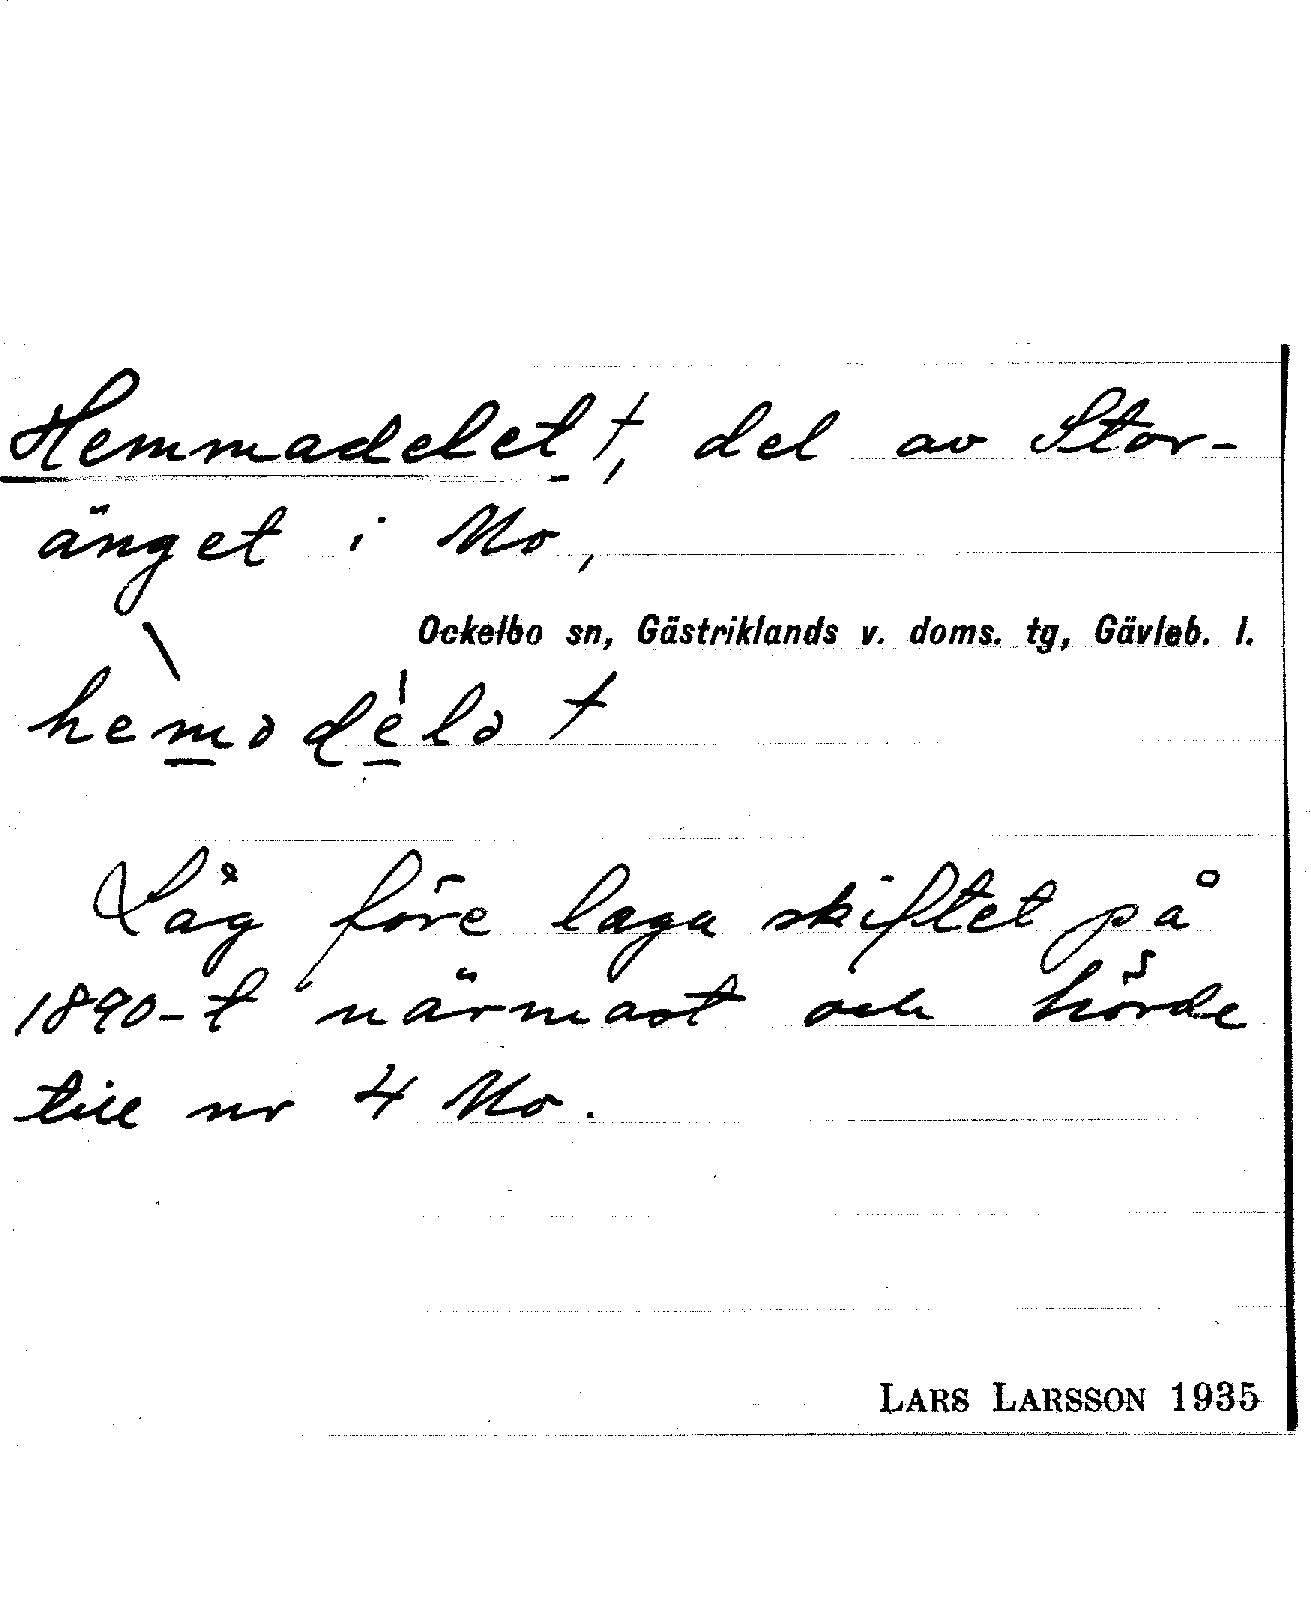 Hemmadelet †, del av Stor-
änget i Mo,
Ockelbo sn, Gästriklands v. doms. tg, Gävleb. l.
hèmadélə †
Låg före laga skiftet på
1890-t närmast och hörde
till nr 4 Mo.
LARS LARSSON 1935